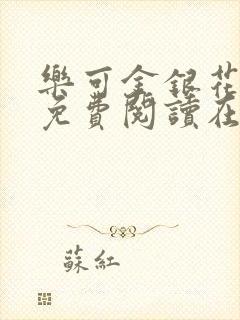 樂可金銀花
免費閱讀在
蘇紅